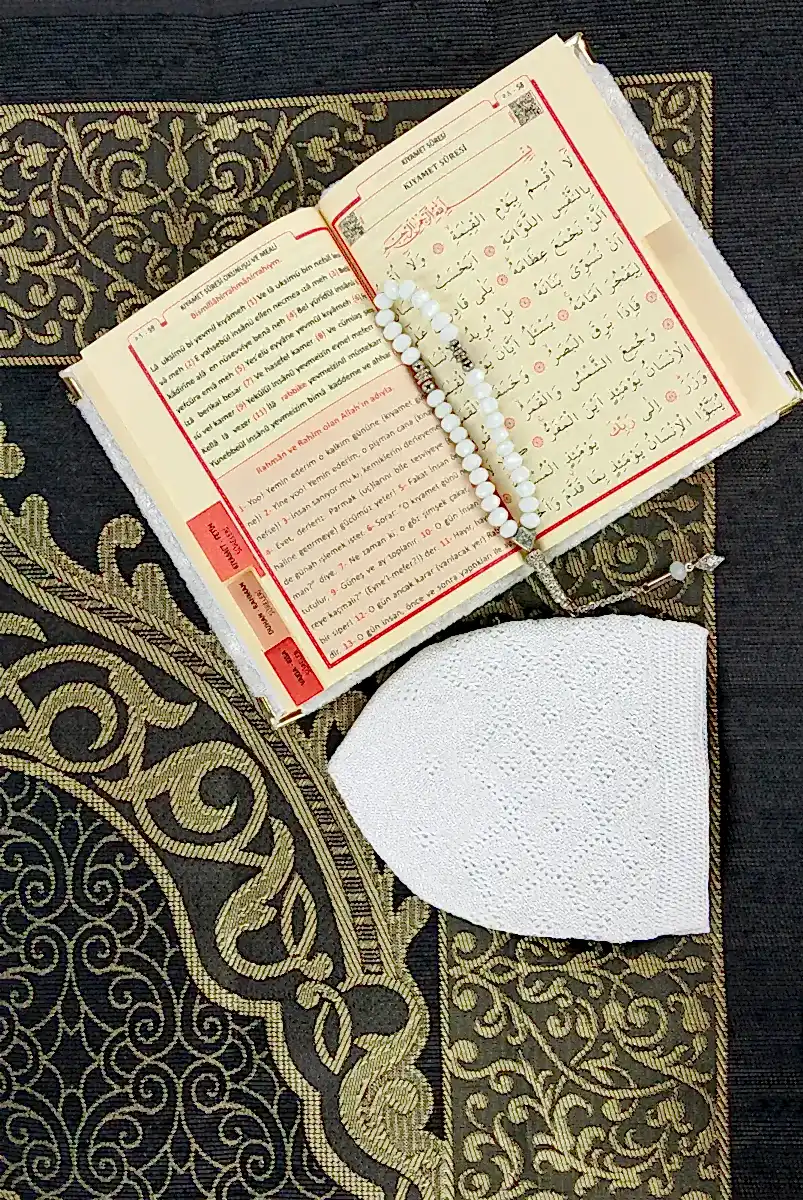 KIYAMET SÛRESİ OKUNUŞU VE MEALİ
Bismillâhirrahmânirrahîym.
Lâ uksimü bi yevmil kıyâmeh (1) Ve lâ uksimü bin nefsil
vâ meh (2) E yahsebül insânü ellen necmea ızâ meh (3) Belâ
kâdirîne alâ en nüsevviye benâ neh (4) Bel yürîdül insânü
yefcüra emâ meh (5) Yes'elü eyyâne yevmül kıyâmeh
izâ berikal besar (7) Ve hasefel kamer (8) Ve cümiaş
sü vel kamer (9) Yekûlül insânü yevmeizin eynel mefer
Kellâ lâ vezer (11) İlâ rabbike yevmeizinil müstekar
Yünebbeül insânü yevmeizim bimâ kaddeme ve ahhar
Rahmân ve Rahîm olan Allah'ın adıyla.
1- Yoo! Yemin ederim o kalkım gününe (kıyamet
ne!) 2- Yine yoo! Yemin ederim, o pişman cana
nefse!) 3- İnsan sanıyor mu ki, kemiklerini derleyemeyiz
4- Evet, derleriz. Parmak (uç)larını bile tesviyeye
haline getirmeye) gücümüz yeter! 5- Fakat insan
de günah işlemek ister. 6- Sorar: "O kıyamet günü
man?" diye. 7- Ne zaman ki, o göz şimşek çakar
tutulur, 9- Güneş ve ay toplanır. 10- O gün insan
reye kaçmalı?" (Eyne'l-mefer?!) der. 11- Hayır,
bir siper! 12- O gün ancak karar (varılacak yer)
dir. 13- O gün insan, önce ve sonra yaptıkları ile
KIYAMET - FETİH
SÛRELERİ
DUHAN RAHMAN
SÛRELERİ
58
KIYAMET SÛRESİ
KIYAMET SÛRESİ
لَا أُقْسِمُ بِيَوْمِ الْقِيٰمَةِ وَلَا
بِالنَّفْسِ اللَّوَّامَةِ اَيَحْسَبُ
اَلَّنْ نَجْمَعَ عِظَامَهُ بَلٰى قَادِرِينَ
اَنْ نُسَوِّىَ بَنَانَهُ بَلْ يُرِيدُ
لِيَفْجُرَ اَمَامَهُ يَسْئَلُ اَيَّانَ
فَاِذَا بَرِقَ الْبَصَرُ وَخَسَفَ
وَجُمِعَ الشَّمْسُ وَالْقَمَرُ
الْاِنْسَانُ يَوْمَئِذٍ اَيْنَ الْمَفَرُّ
وَزَرَ اِلٰى رَبِّكَ يَوْمَئِذٍ
يُنَبَّؤُا الْاِنْسَانُ يَوْمَئِذٍ بِمَا قَدَّمَ وَاَخَّرَ